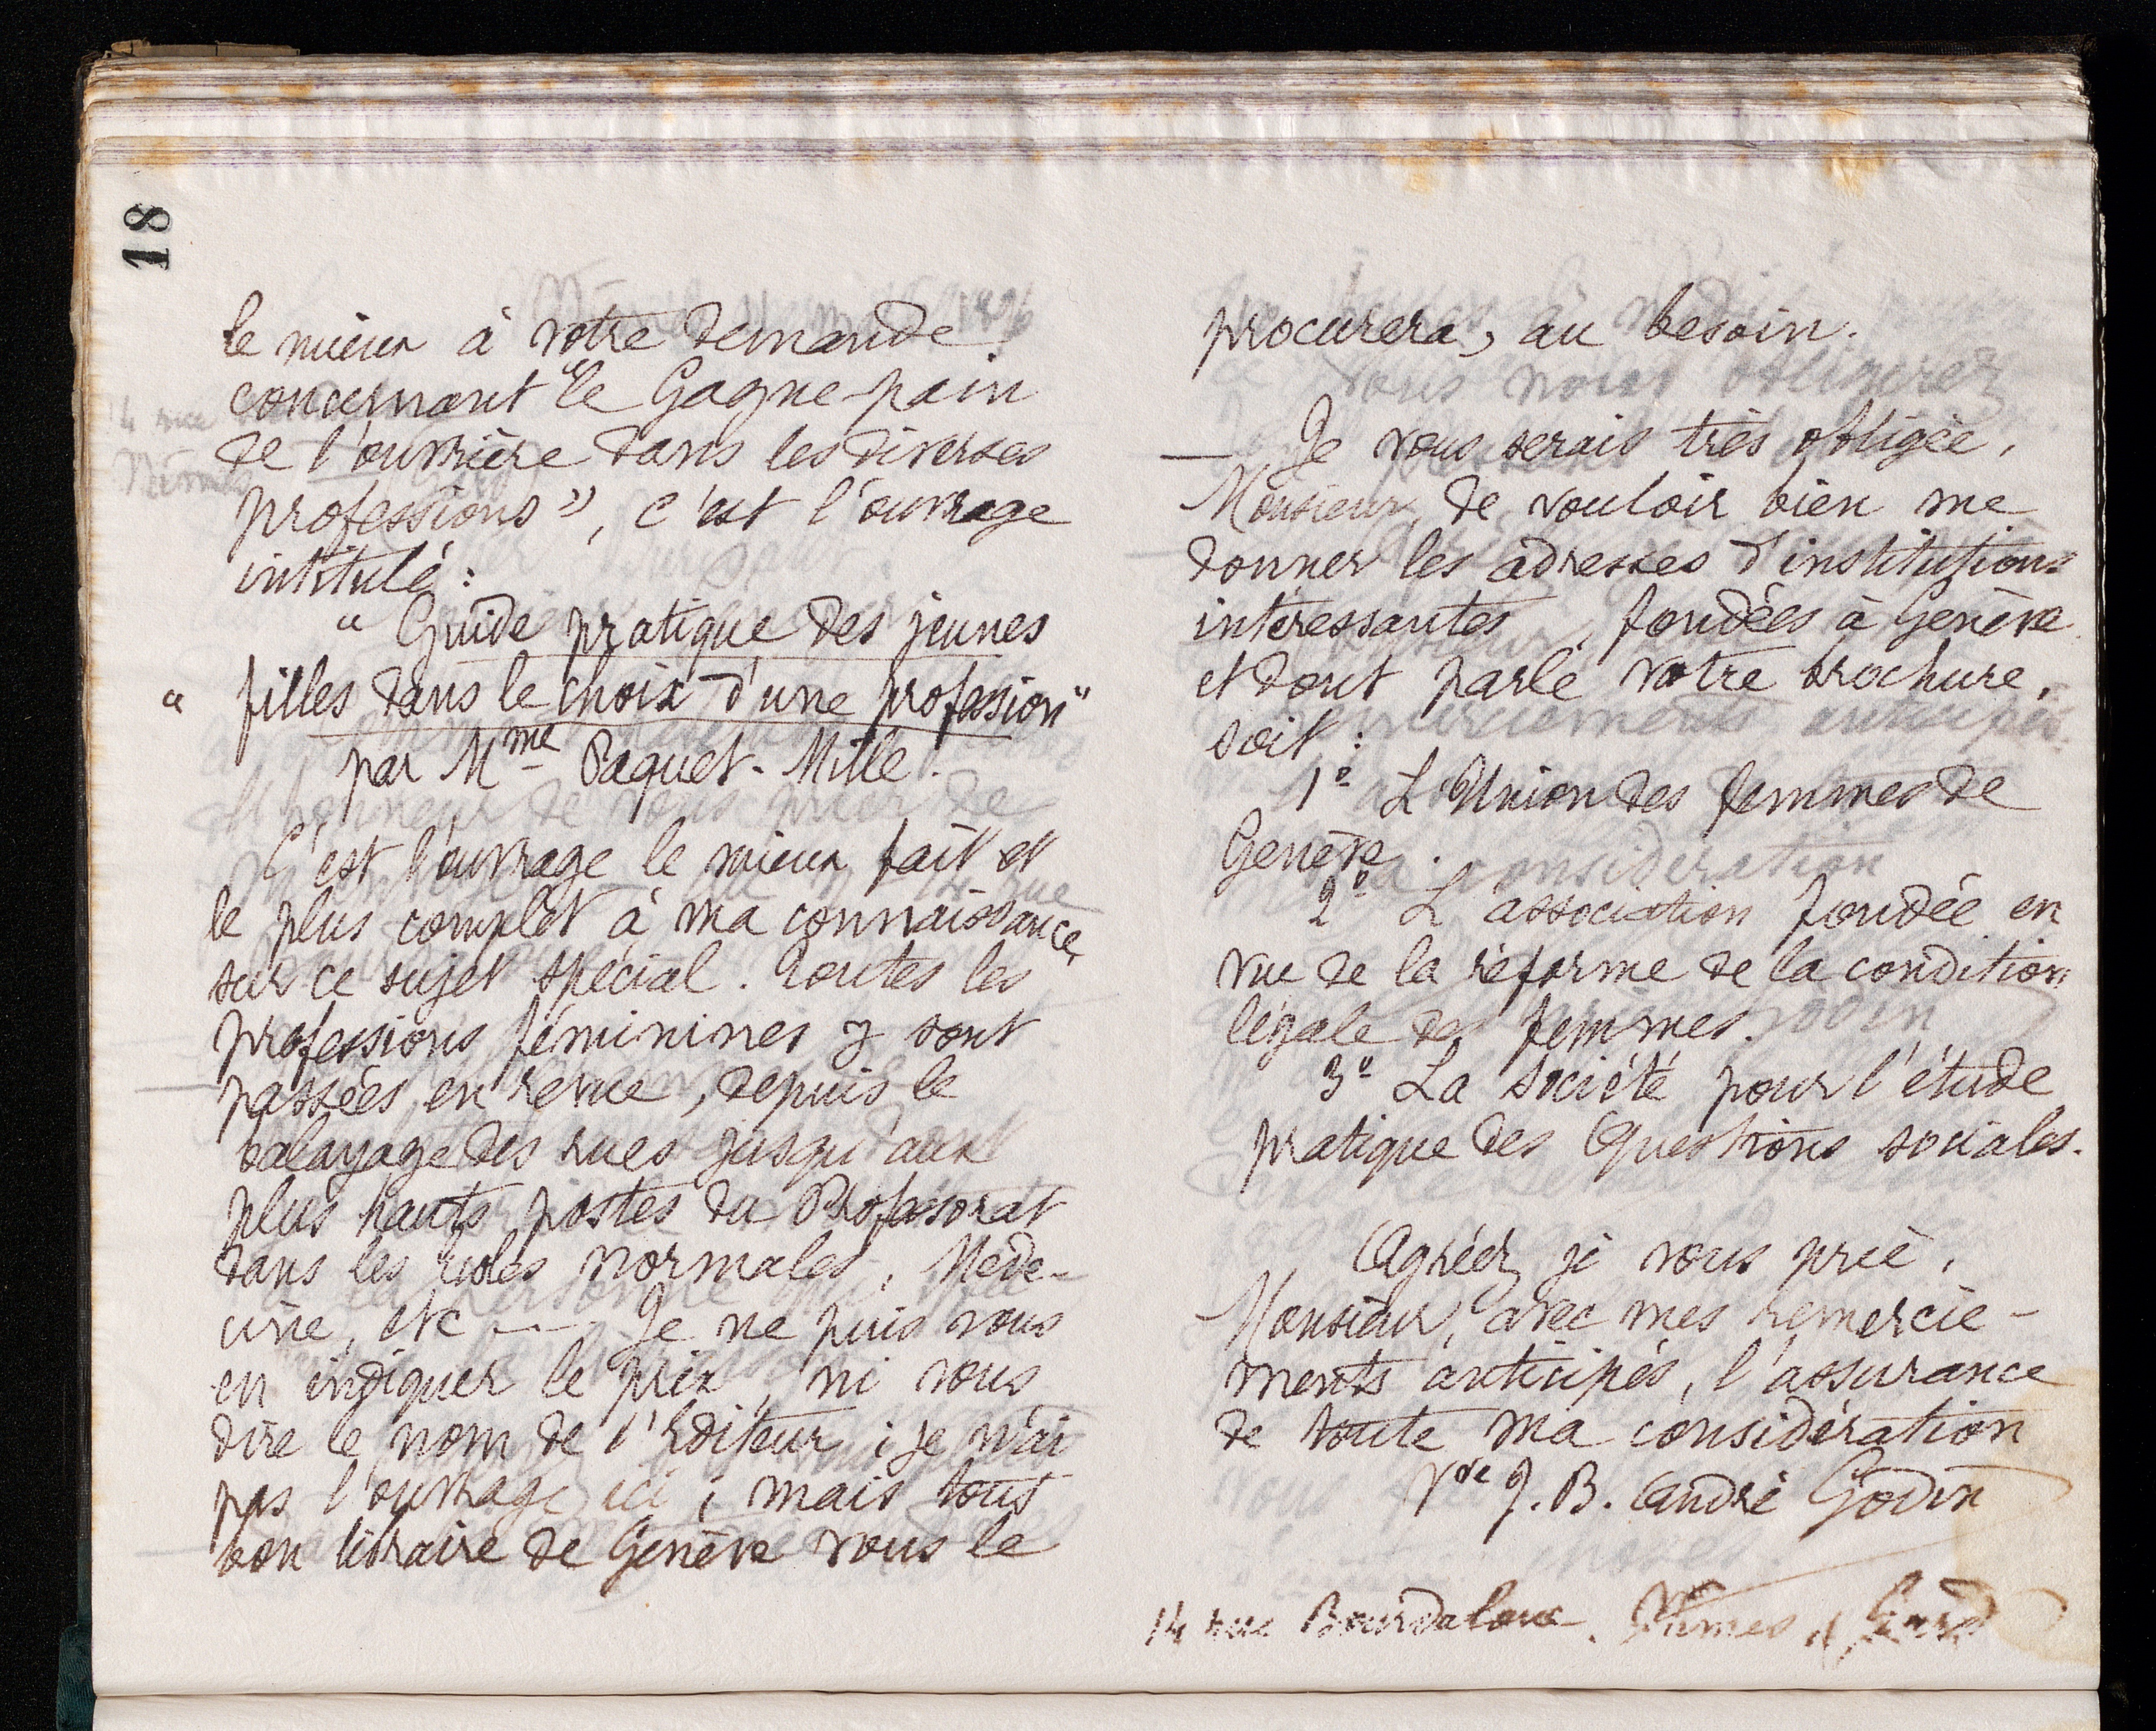 18
le mieux à votre demande
concernant "le Gagne-pain
de l'ouvrière dans les diverses
professions", c'est l'ouvrage
intitulé :
" Guide pratique des jeunes
" filles dans le choix d'une profession "
par Mme Paquet-Mille.
C'est l'ouvrage le mieux fait et
le plus complet à ma connaissance,
sur ce sujet spécial. Toutes les
professions féminines y sont
passées en revue, depuis le
balayage des rues jusqu'aux
plus hauts postes du Professorat
dans les écoles normales, Méde-
cine, etc ---- Je ne puis vous
en indiquer le prix, ni vous
dire le nom de l'Editeur ; je n'ai
pas l'ouvrage ici ; mais tout
bon libraire de Genève vous le
procurera, au besoin.
Je vous serais très obligée,
Monsieur, de vouloir bien me
donner les adresses d'institutions
intéressantes, fondées à Genève
et dont parle votre brochure,
soit :
1° L'Union des femmes de
Genève.
2° L'association fondée en
vue de la réforme de la condition
légale des femmes.
3° La Société pour l'étude
pratique des Questions sociales.
Agréez, je vous prie,
Monsieur, avec mes remercie-
ments anticipés, l'assurance
de toute ma considération
Vve J. B. André Godin
14 rue Bourdaloue. Nîmes, Gard